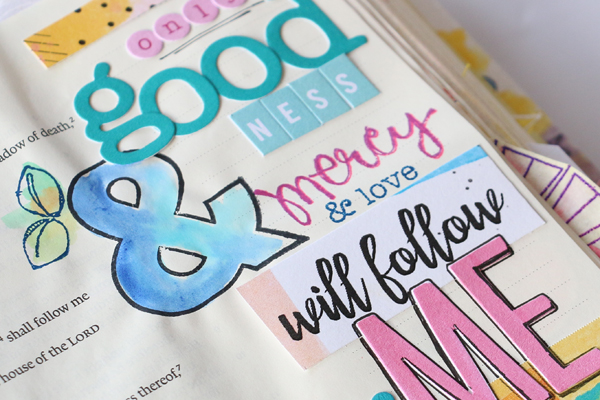 only
good
NESS
&
mercy
& love
will follow
ME
shadow of death,²
shall follow me
house of the LORD
thereof,⁷